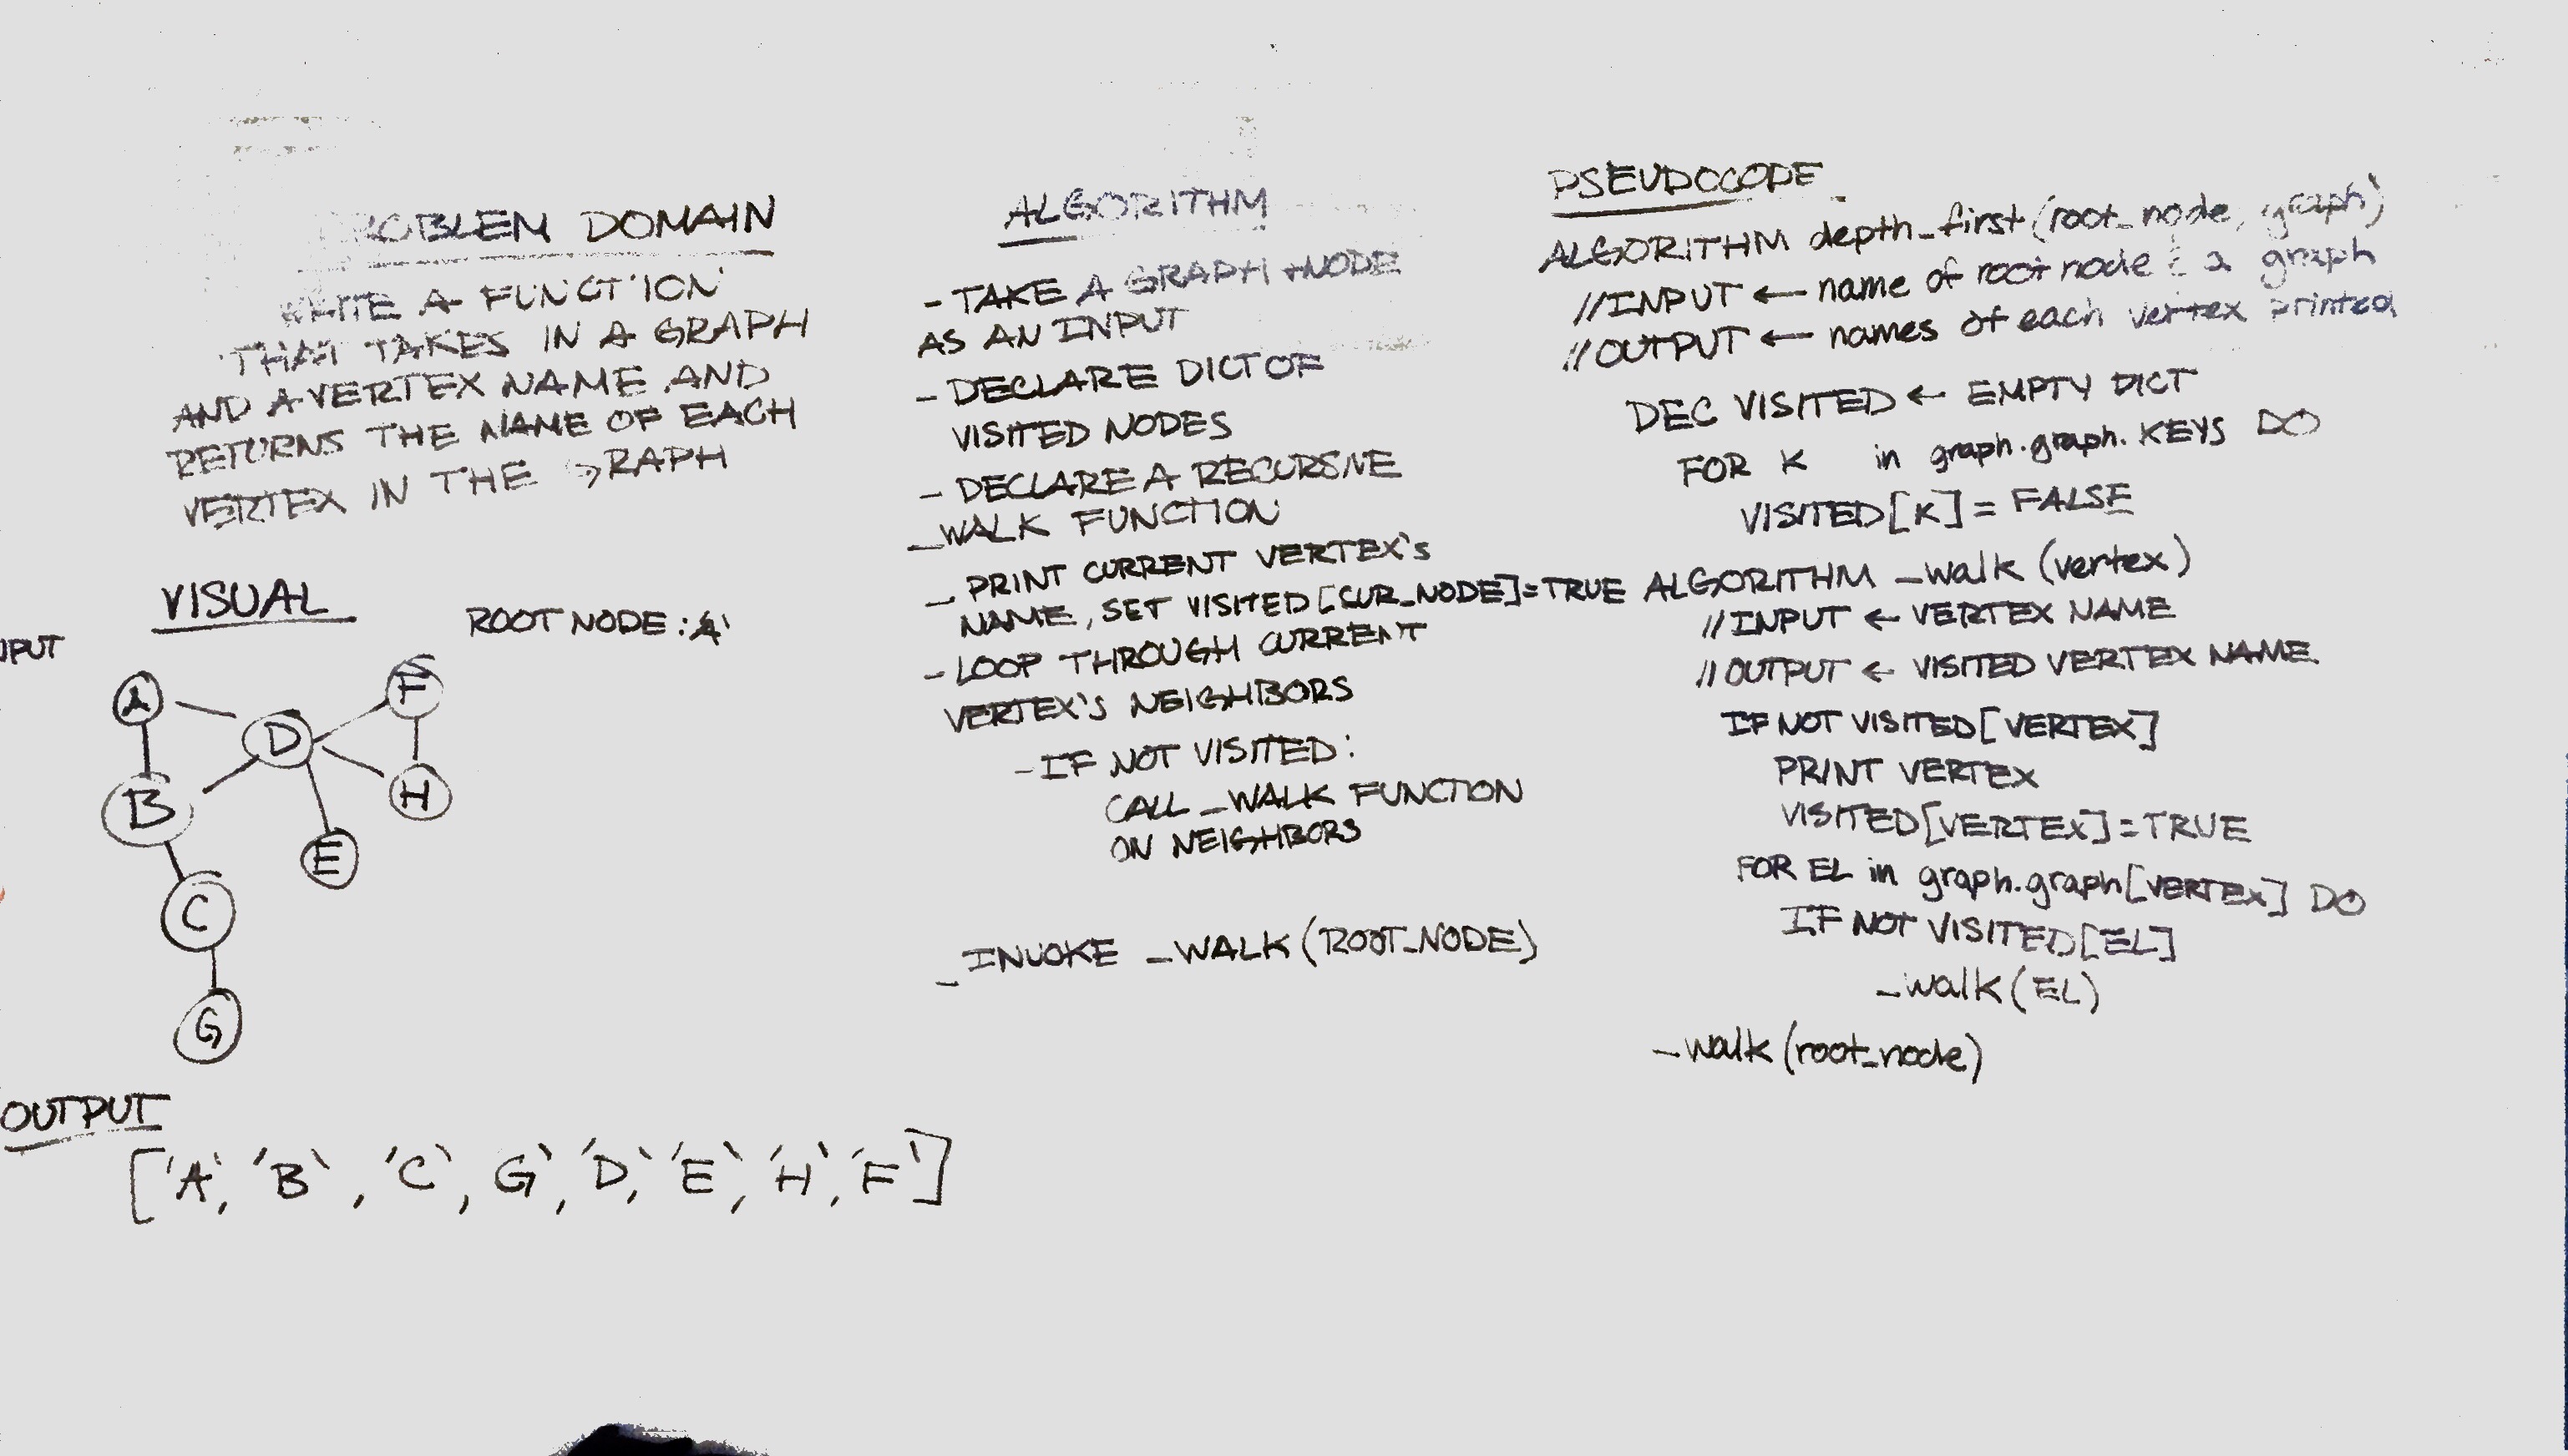 PROBLEM DOMAIN
WRITE A FUNCTION
THAT TAKES IN A GRAPH
AND A VERTEX NAME AND
RETURNS THE NAME OF EACH
VERTEX IN THE GRAPH
VISUAL
ROOT NODE: 'A'
PUT
A
F
D
B
H
E
C
G
OUTPUT
['A', 'B', 'C', G', 'D', 'E', 'H', 'F']
ALGORITHM
- TAKE A GRAPH + NODE
AS AN INPUT
- DECLARE DICT OF
VISITED NODES
- DECLARE A RECURSIVE
_WALK FUNCTION
- PRINT CURRENT VERTEX's
NAME, SET VISITED[CUR_NODE]=TRUE
- LOOP THROUGH CURRENT
VERTEX'S NEIGHBORS
- IF NOT VISITED:
CALL _WALK FUNCTION
ON NEIGHBORS
- INVOKE _WALK(ROOT_NODE)
PSEUDOCODE
ALGORITHM depth_first(root_node, graph)
//INPUT ← name of root node & a graph
//OUTPUT ← names of each vertex printed
DEC VISITED ← EMPTY DICT
FOR K in graph.graph.KEYS DO
VISITED[K] = FALSE
ALGORITHM _walk (vertex)
//INPUT ← VERTEX NAME
//OUTPUT ← VISITED VERTEX NAME
IF NOT VISITED[VERTEX]
PRINT VERTEX
VISITED[VERTEX]=TRUE
FOR EL in graph.graph[VERTEX] DO
IF NOT VISITED[EL]
_walk(EL)
_walk(root_node)